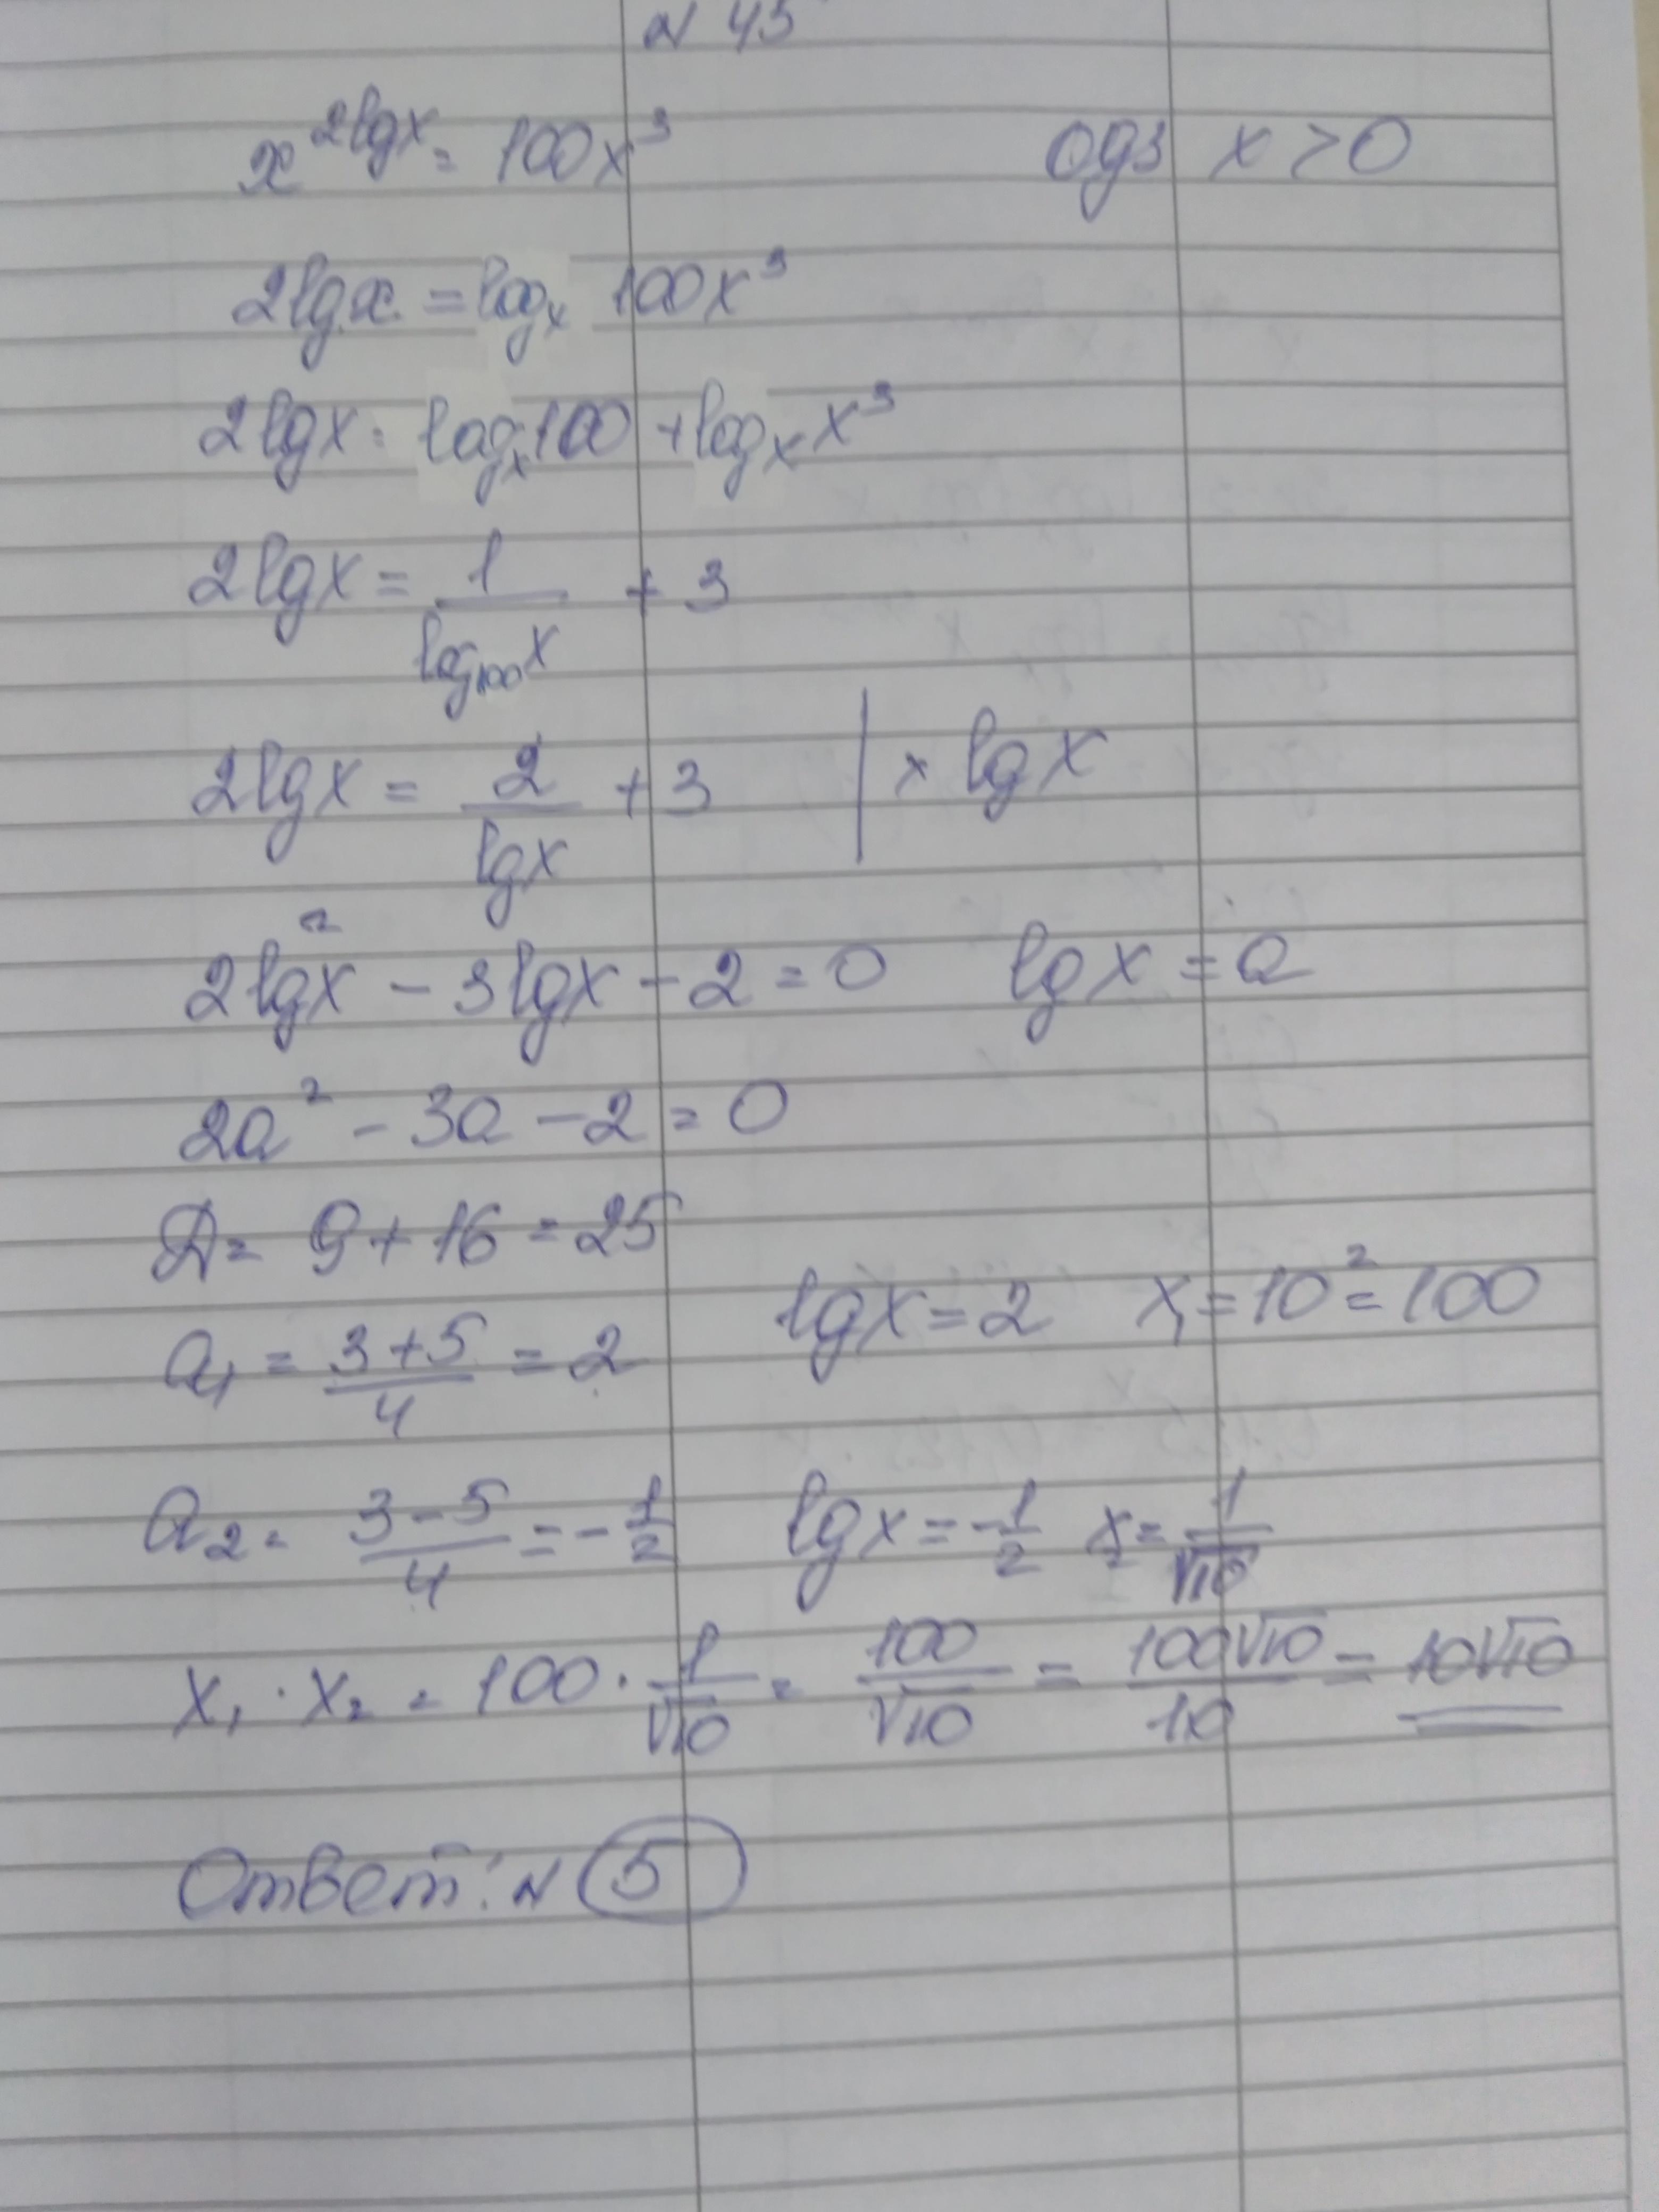 № 45
x^{2lgx} = 100x³ одз x > 0
2lgx = log_x 100x³
2lgx = log_x 100 + log_x x³
2lgx = 1/log₁₀₀x + 3
2lgx = 2/lgx + 3 | × lgx
2lg²x - 3lgx - 2 = 0 lgx = a
2a² - 3a - 2 = 0
Д = 9 + 16 = 25
a₁ = (3+5)/4 = 2 lgx = 2 x₁ = 10² = 100
a₂ = (3-5)/4 = -1/2 lgx = -1/2 x₂ = 1/√10
x₁ · x₂ = 100 · 1/√10 = 100/√10 = 100√10/10 = 10√10
Ответ: № 5